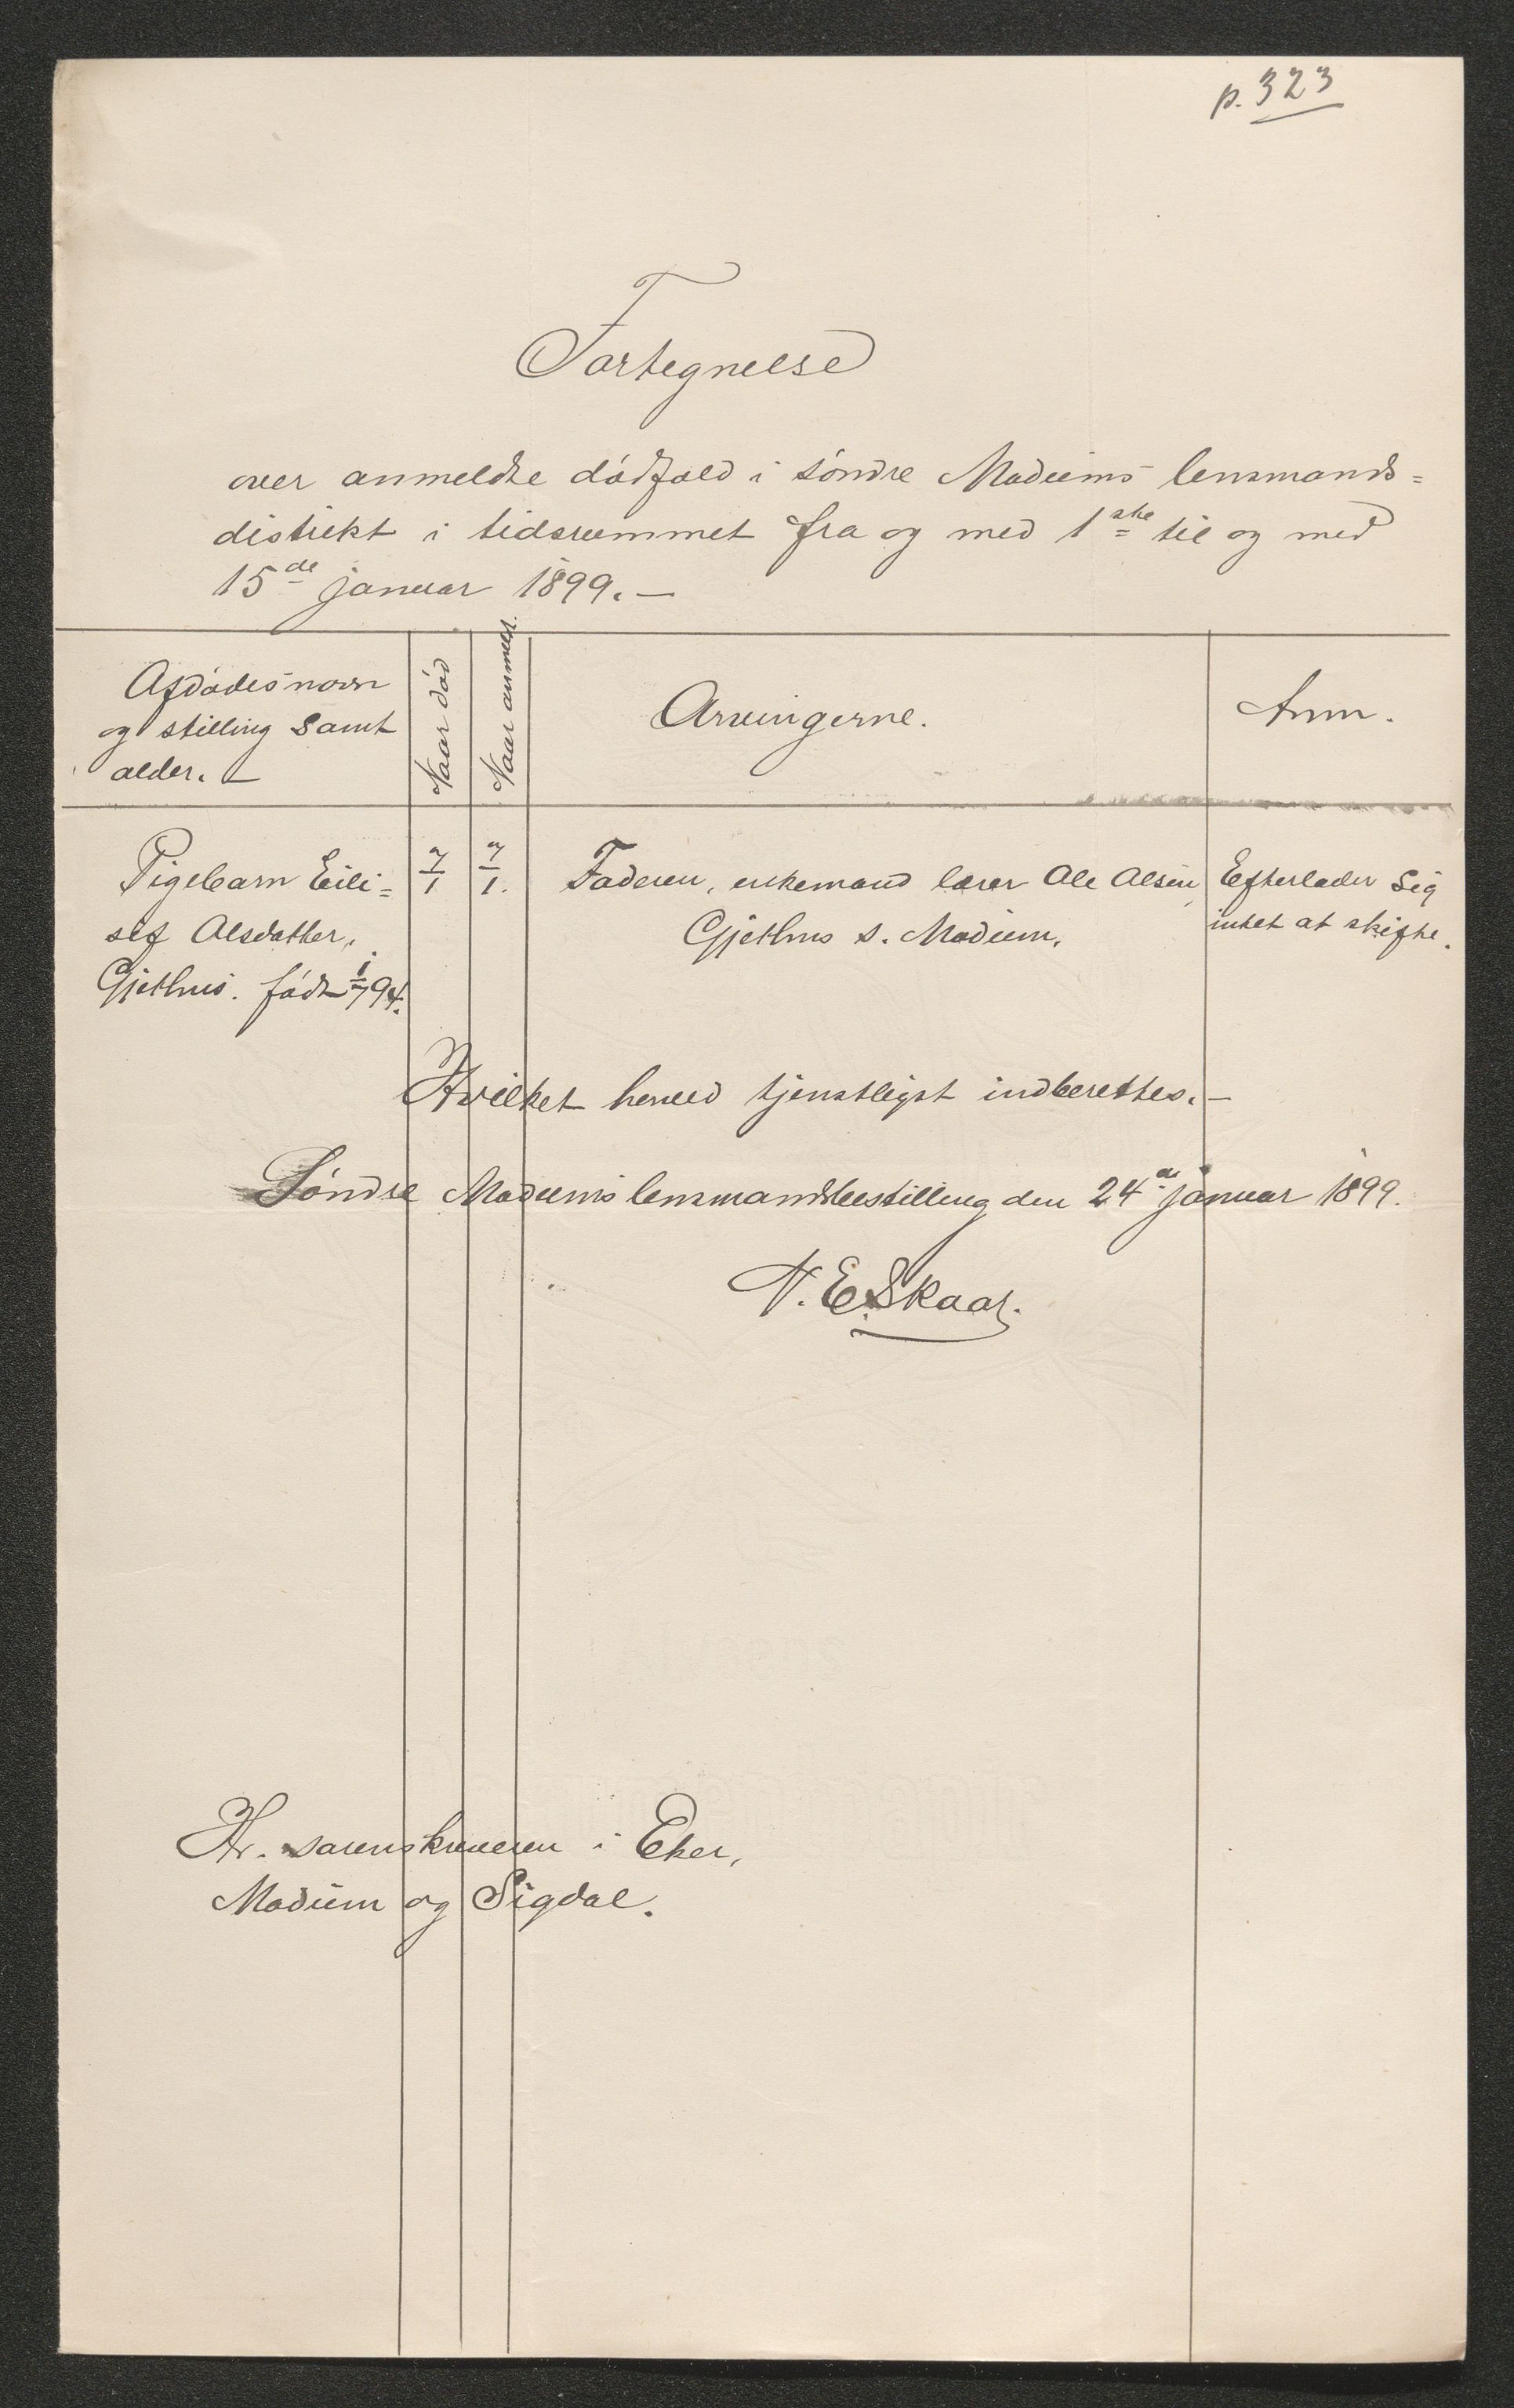 p. 323
Fortegnelse
over anmeldte dødsfald i søndre Modums lensmands=
distrikt i tidsrummet fra og med 1ste til og med
15de januar 1899. —
Afdødes navn
og stilling samt
alder. —
Naar død
Naar anmeldt.
Arvingerne.
Anm.
Pigebarn Eili=
sif Olsdatter,
Gjethus. født 1/7 94.
7/1
7/1.
Faderen, enkemand lærer Ole Olsen,
Gjethus s. Modum.
Efterlader sig
intet at skifte.
Hvilket herved tjenstligst indberettes. —
Søndre Modums lensmandsbestilling den 24de januar 1899.
N. E. Skaar.
Hr. sorenskriveren i Eker,
Modum og Sigdal.